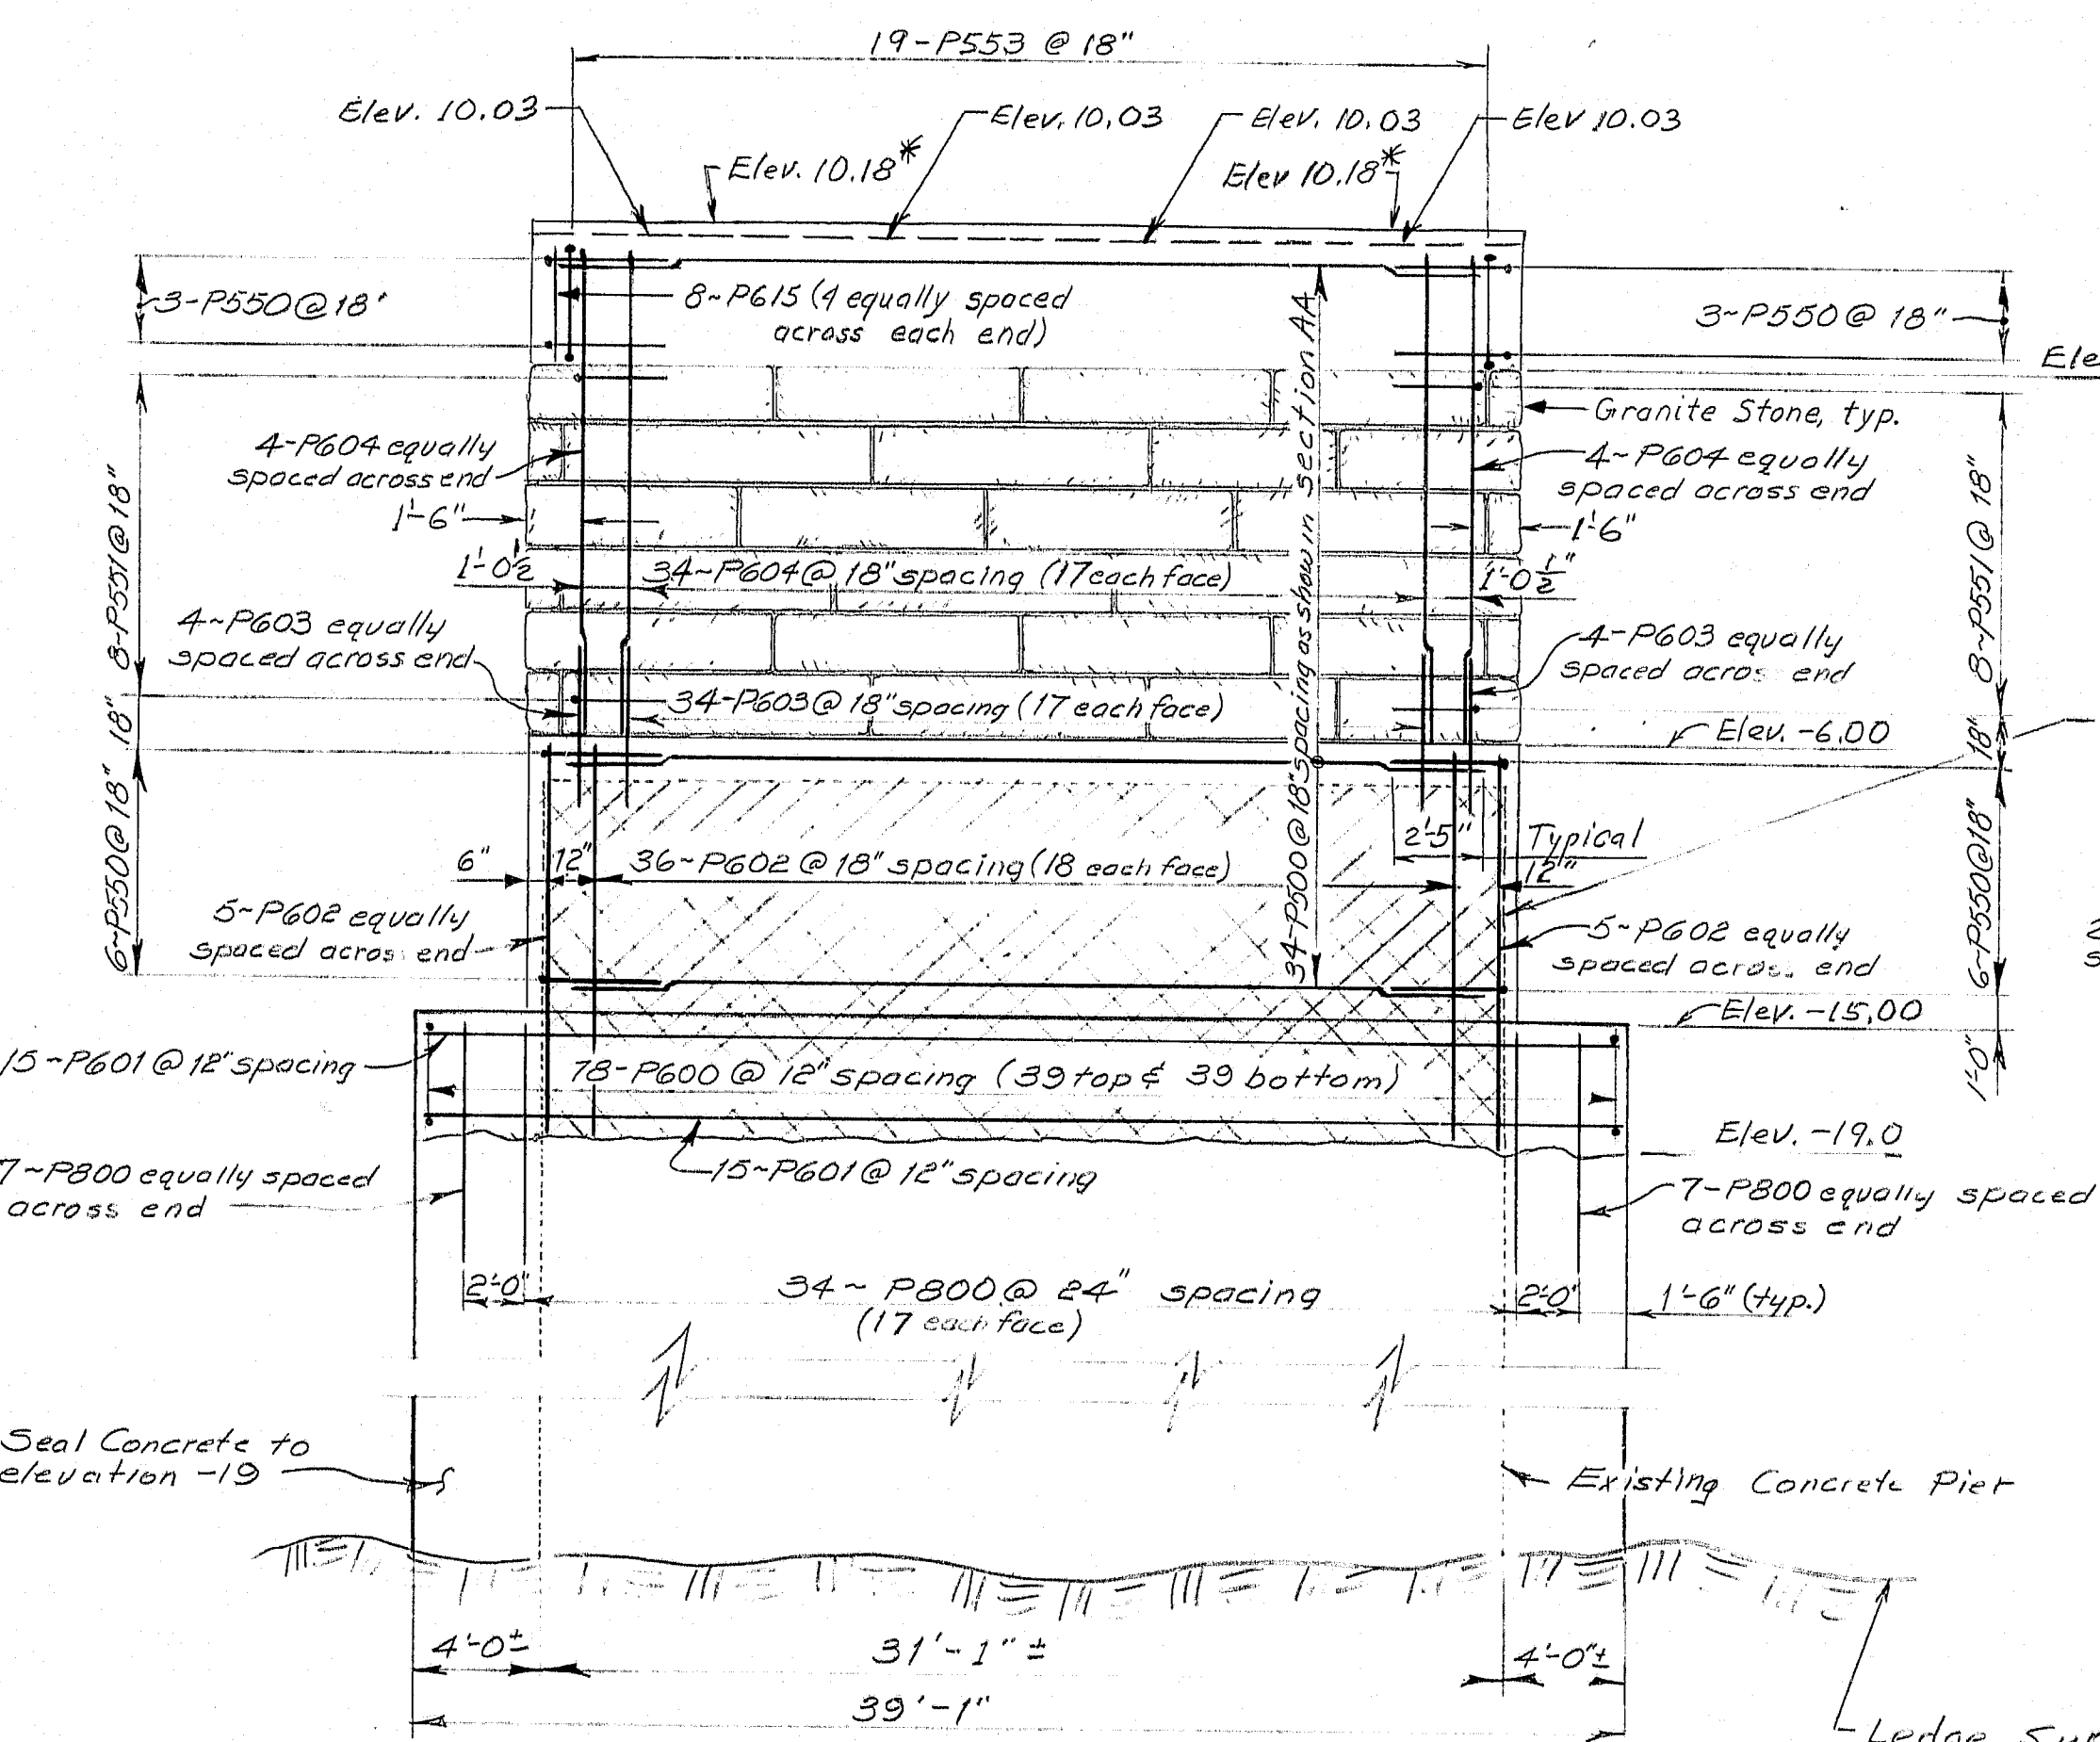 19-P553 @ 18"
Elev. 10.03
Elev. 10.03
Elev. 10.03
Elev 10.03
Elev. 10.18*
Elev 10.18*
3-P550 @ 18'
8~P615 (4 equally spaced
across each end)
3~P550 @ 18"
Granite Stone, typ.
4-P604 equally
spaced across end
4~P604 equally
spaced across end
1'-6"
1'-6"
1'-0½
34~P604 @ 18" spacing (17 each face)
1'-0½"
8-P551 @ 18"
8~P551 @ 18"
4~P603 equally
spaced across end
4-P603 equally
spaced across end
34-P603 @ 18" spacing (17 each face)
Elev. -6.00
18"
18"
34-P500 @ 18" spacing as shown in Section AA
6~P550 @ 18"
6-P550 @ 18"
2'-5"
Typical
6"
12"
36~P602 @ 18" spacing (18 each face)
12"
5~P602 equally
spaced across end
5~P602 equally
spaced across end
Elev. -15.00
1'-0"
15~P601 @ 12" spacing
78-P600 @ 12" spacing (39 top & 39 bottom)
Elev. -19.0
15~P601 @ 12" spacing
7~P800 equally spaced
across end
7-P800 equally spaced
across end
2'-0"
34~ P800 @ 24" spacing
(17 each face)
2'-0"
1'-6" (typ.)
Seal Concrete to
elevation -19
Existing Concrete Pier
4'-0±
31'-1" ±
4'-0"±
39'-1"
Ledge